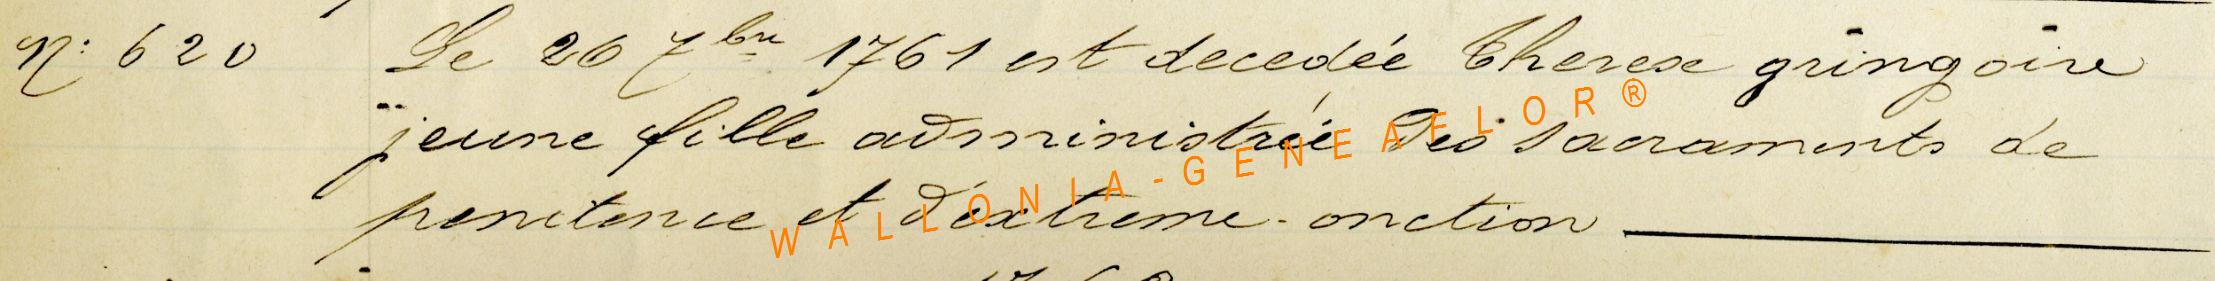 N: 620 Le 26 7bre 1761 est decedée Therese gringoire
jeune fille administrée des sacraments de
penitence et d'extreme-onction
WALLONIA-GENEAELOR®